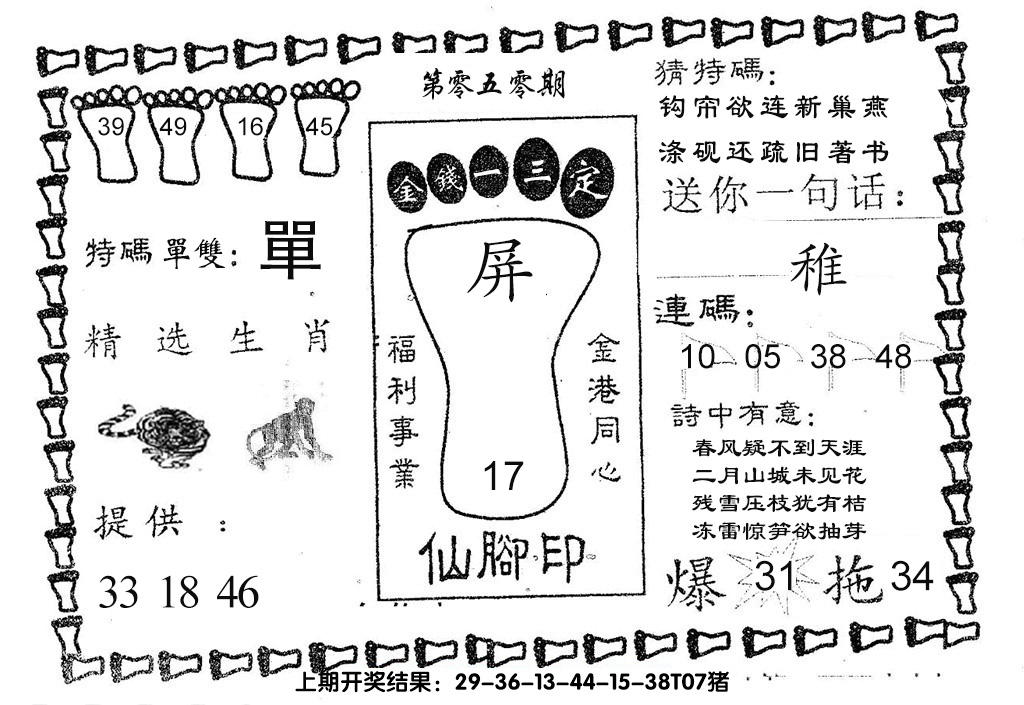 第零五零期
39 49 16 45
特碼單雙: 單
精选生肖
提供:
33 18 46
金錢一三定
屏
福利事業
金港同心
17
仙腳印
猜特碼:
钩帘欲连新巢燕
涤砚还疏旧著书
送你一句话:
稚
連碼:
10 05 38 48
詩中有意:
春风疑不到天涯
二月山城未见花
残雪压枝犹有桔
冻雷惊笋欲抽芽
爆 31 拖 34
上期开奖结果: 29-36-13-44-15-38T07猪